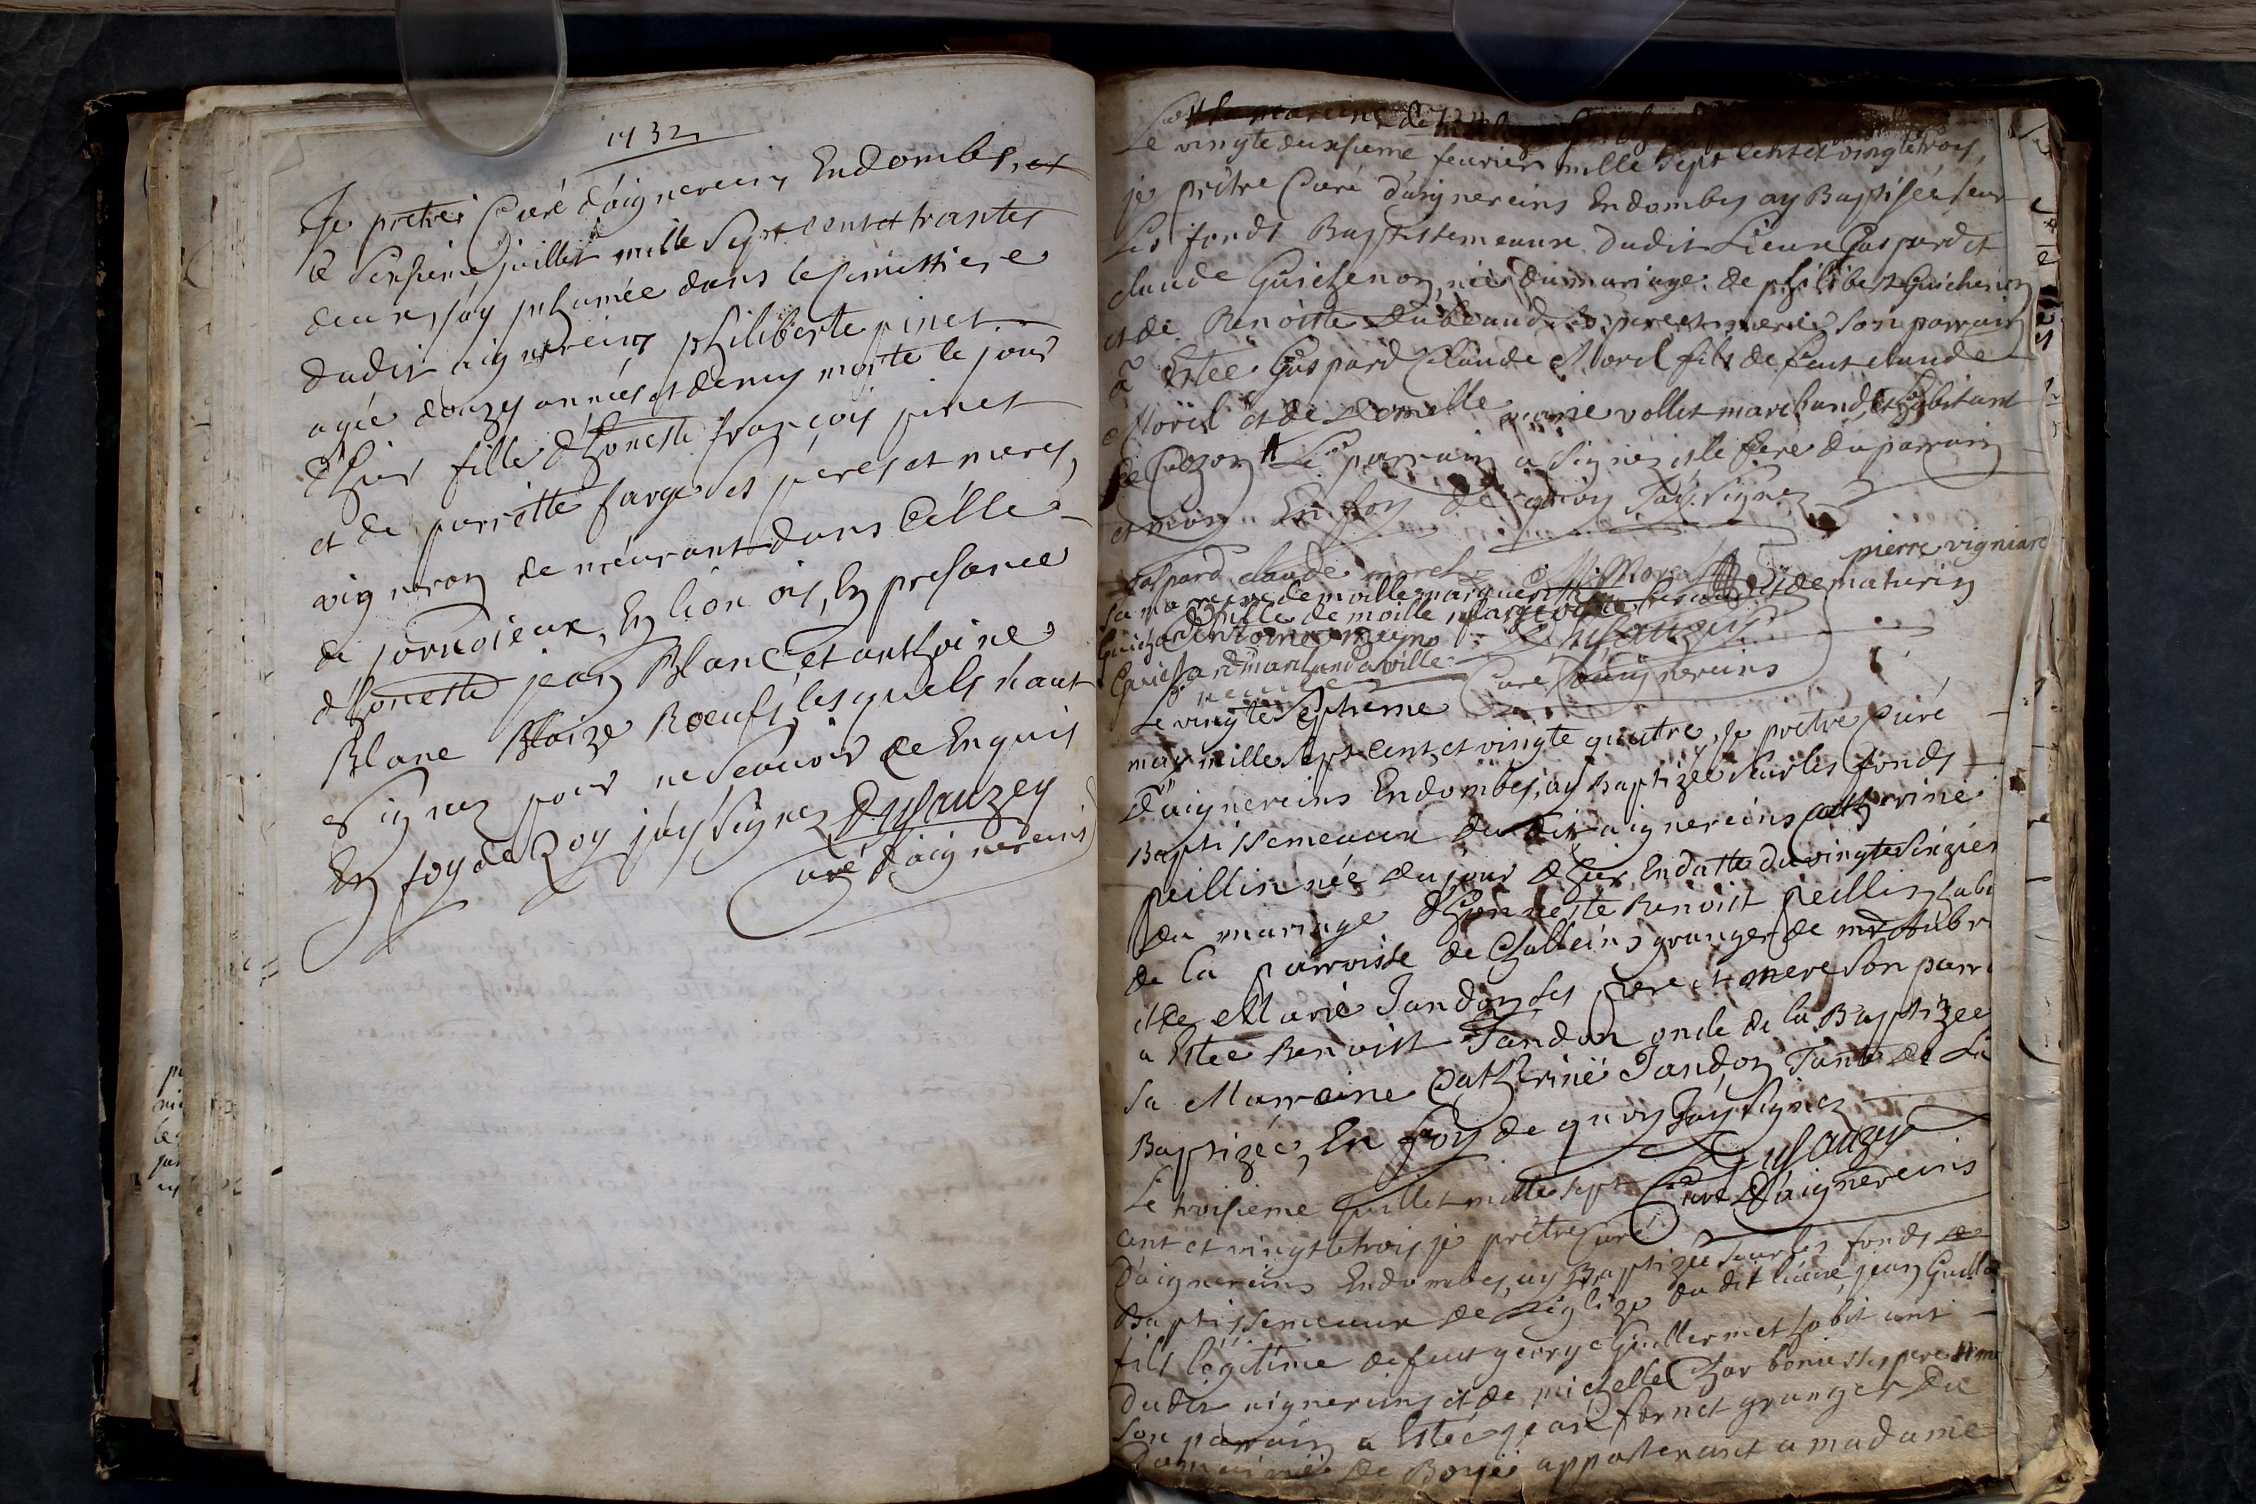 1732
Je pretres Curé d'aignereins Endombes, et
le sesieme Juillet mille sept cent et trantes
deux, j'ay inhumée dans le simittiere
dudit aignereins philiberte pinet
agée douzes annés et demy morte le jour
d'hier fille d'honeste françois pinet
et de pierrette farge ses peres et meres,
vigneron demeurant dans Cille
de pornoieux, En lionois, En presance
d'honeste jean Blanc et anthoine
Blanc Blaize Boeuf, lesquels n'aut
signez pour ne scauoir de Enquis
En foy de quoy j'ay signez Dusauzey
curé d'aignereins
Le vingte deuxsieme feurier mille sept cent et vingte trois,
je prêtre Curé d'aignereins Endombes ay Baptisée sur
les fonds Baptissemeaux dudit Lieux Gaspard et
claude Guichenon, née du mariage de philibert Guichenon
et de Benoiste Dubland ses pere et mere son parrain
a Estée Gaspard Claude Morel fils de feut claude
Morel et de Domelle marie vollet marchand, et habitant
de Cuzon le parrain a signéz et le frere du parrain
et moy En foy de quoy J'ay Signez
gaspard claude morel Morel pierre vigniard
sa mareine demoille margueritte
fille de moille de maturin
Dusauzey
marchand a ville Curé d'aignereins
Le vingte septieme
may mille sept cent et vingte quattre, Je prêtre Curé
D'aignereins Endombes, ay Baptizée sur les fonds
Baptissemeaux du dit aignereins Catherine
peillin née du jour d'hier En datte du vingte sizier
du mariage d'honneste Benoist peillin habi
de la parroisse de Challeins granger de mr
et de Marie Jandon ses pere et mere son parr
a Estée Benoist Jandon oncle de la Baptizée
sa Marraine Catherine Jandon Tante de La
Baptizée, En foy de quoy J'ay Signez
Dusauzey
Curé D'aignereins
Le troisieme Juillet mille sept
cent et vingte trois, je prêtre Curé
D'aignereins Endombes, ay Baptizée sur les fonds
Baptissemeaux de l'eiglize du dit lieux, jean
fils légitime de feut george Guillermet habitant
dudit aignereins et de michelle Charbonie ses pere et me
son parrain a Estée jean fornet granger du
Domaine de Boyie appartenant a madame